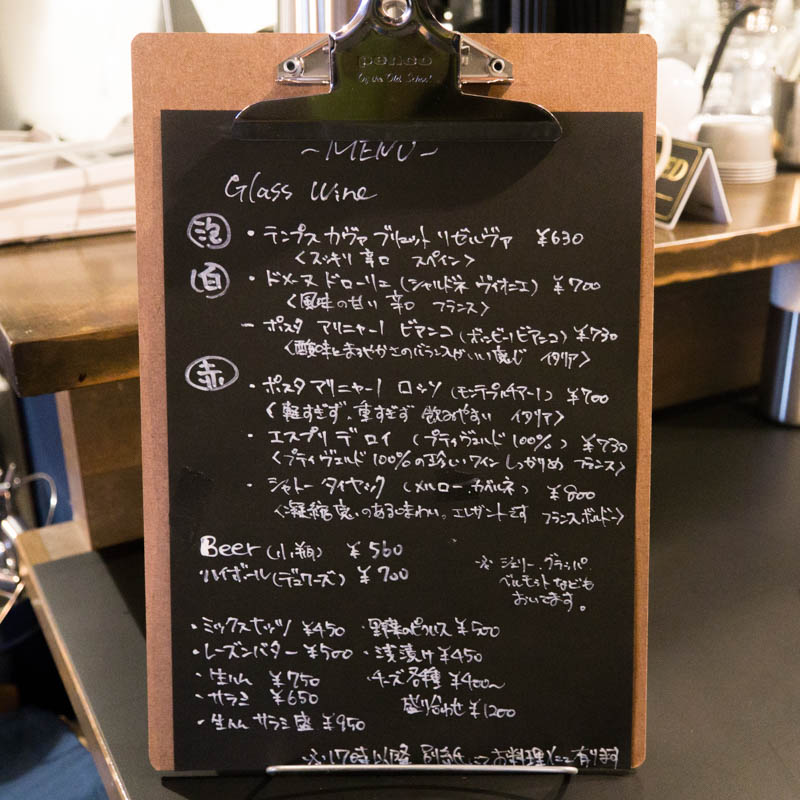 penco
By the Old School
~MENU~
Glass Wine
泡 ・テンプス カヴァ ブリュット リゼルヴァ ¥630
<スッキリ 辛口 スペイン>
白 ・ドメーヌ ドローリエ(シャルドネ ヴィオニエ) ¥700
<風味の甘い 辛口 フランス>
- ポスタ マリニャーノ ビアンコ(ボンビーノビアンコ) ¥730
<酸味とまろやかさのバランスがいい感じ イタリア>
赤 ・ポスタ マリニャーノ ロッソ (モンテプルチアーノ) ¥700
<軽すぎず、重すぎず 飲みやすい イタリア>
・エスプリ デ ロイ (プティヴェルド 100%) ¥730
<プティヴェルド 100%の珍しいワイン しっかりめ フランス>
・シャトー タイヤック (メルロー.カベルネ) ¥800
<凝縮感のある味わい。エレガントです フランス.ボルドー>
Beer(小瓶) ¥560
ハイボール(デュワーズ) ¥700
※ シェリー.グラッパ.
ベルモットなども
おいてます。
・ミックスナッツ ¥450 ・野菜のピクルス ¥500
・レーズンバター ¥500 ・浅漬け ¥450
・生ハム ¥750 ・チーズ各種 ¥400~
・サラミ ¥650 盛り合わせ ¥1200
・生ハム サラミ盛 ¥950
※17時以降 別紙にてお料理 有ります